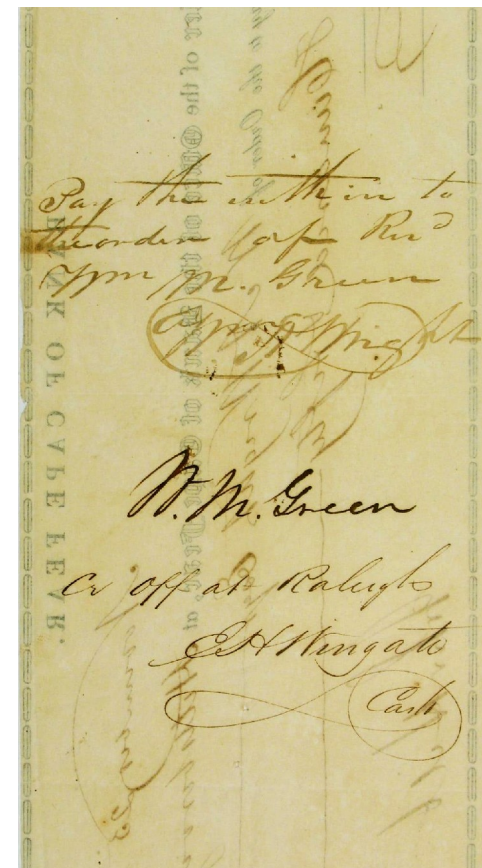 Pay the within to
the order of Revd
Wm M. Green
Wm A Wright
W. M. Green
Cr Off at Raleigh
E H Wingate
Cash
BANK OF CAPE FEAR.